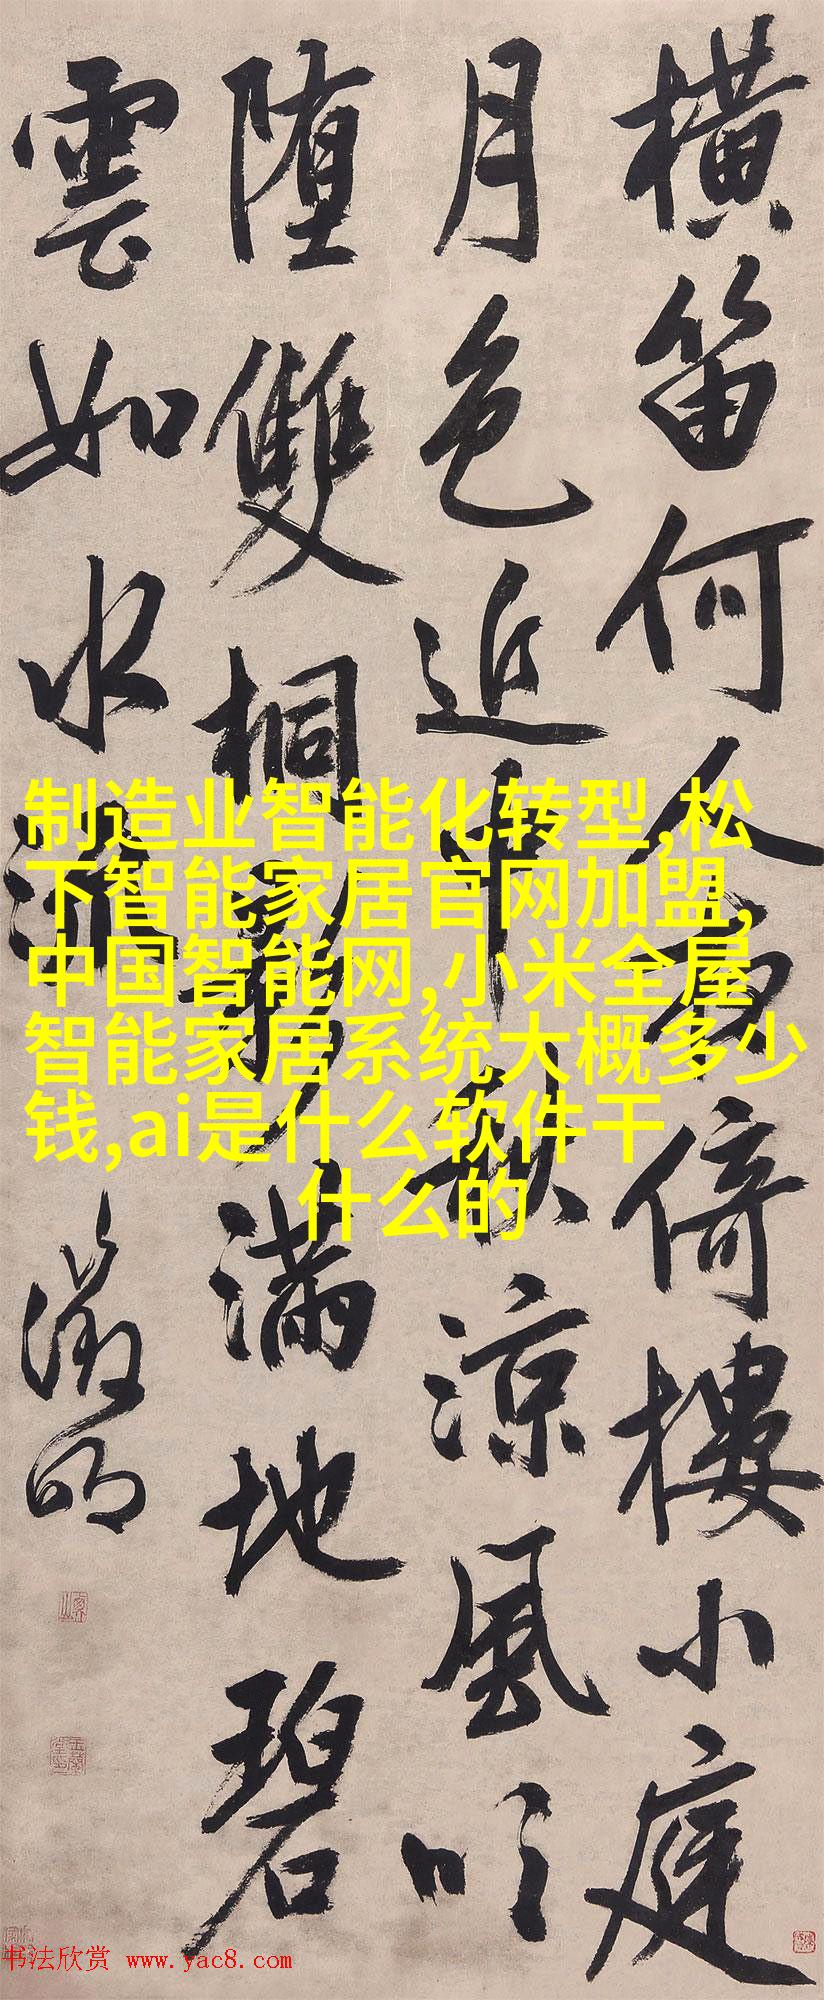 橫笛何人夜倚樓小庭
月色近中秋涼風吹
堕雙桐影滿地碧
雲如水流
徵明
制造业智能化转型,松
下智能家居官网加盟,
中国智能网,小米全屋
智能家居系统大概多少
钱,ai是什么软件干
什么的
书法欣赏 www.yac8.com